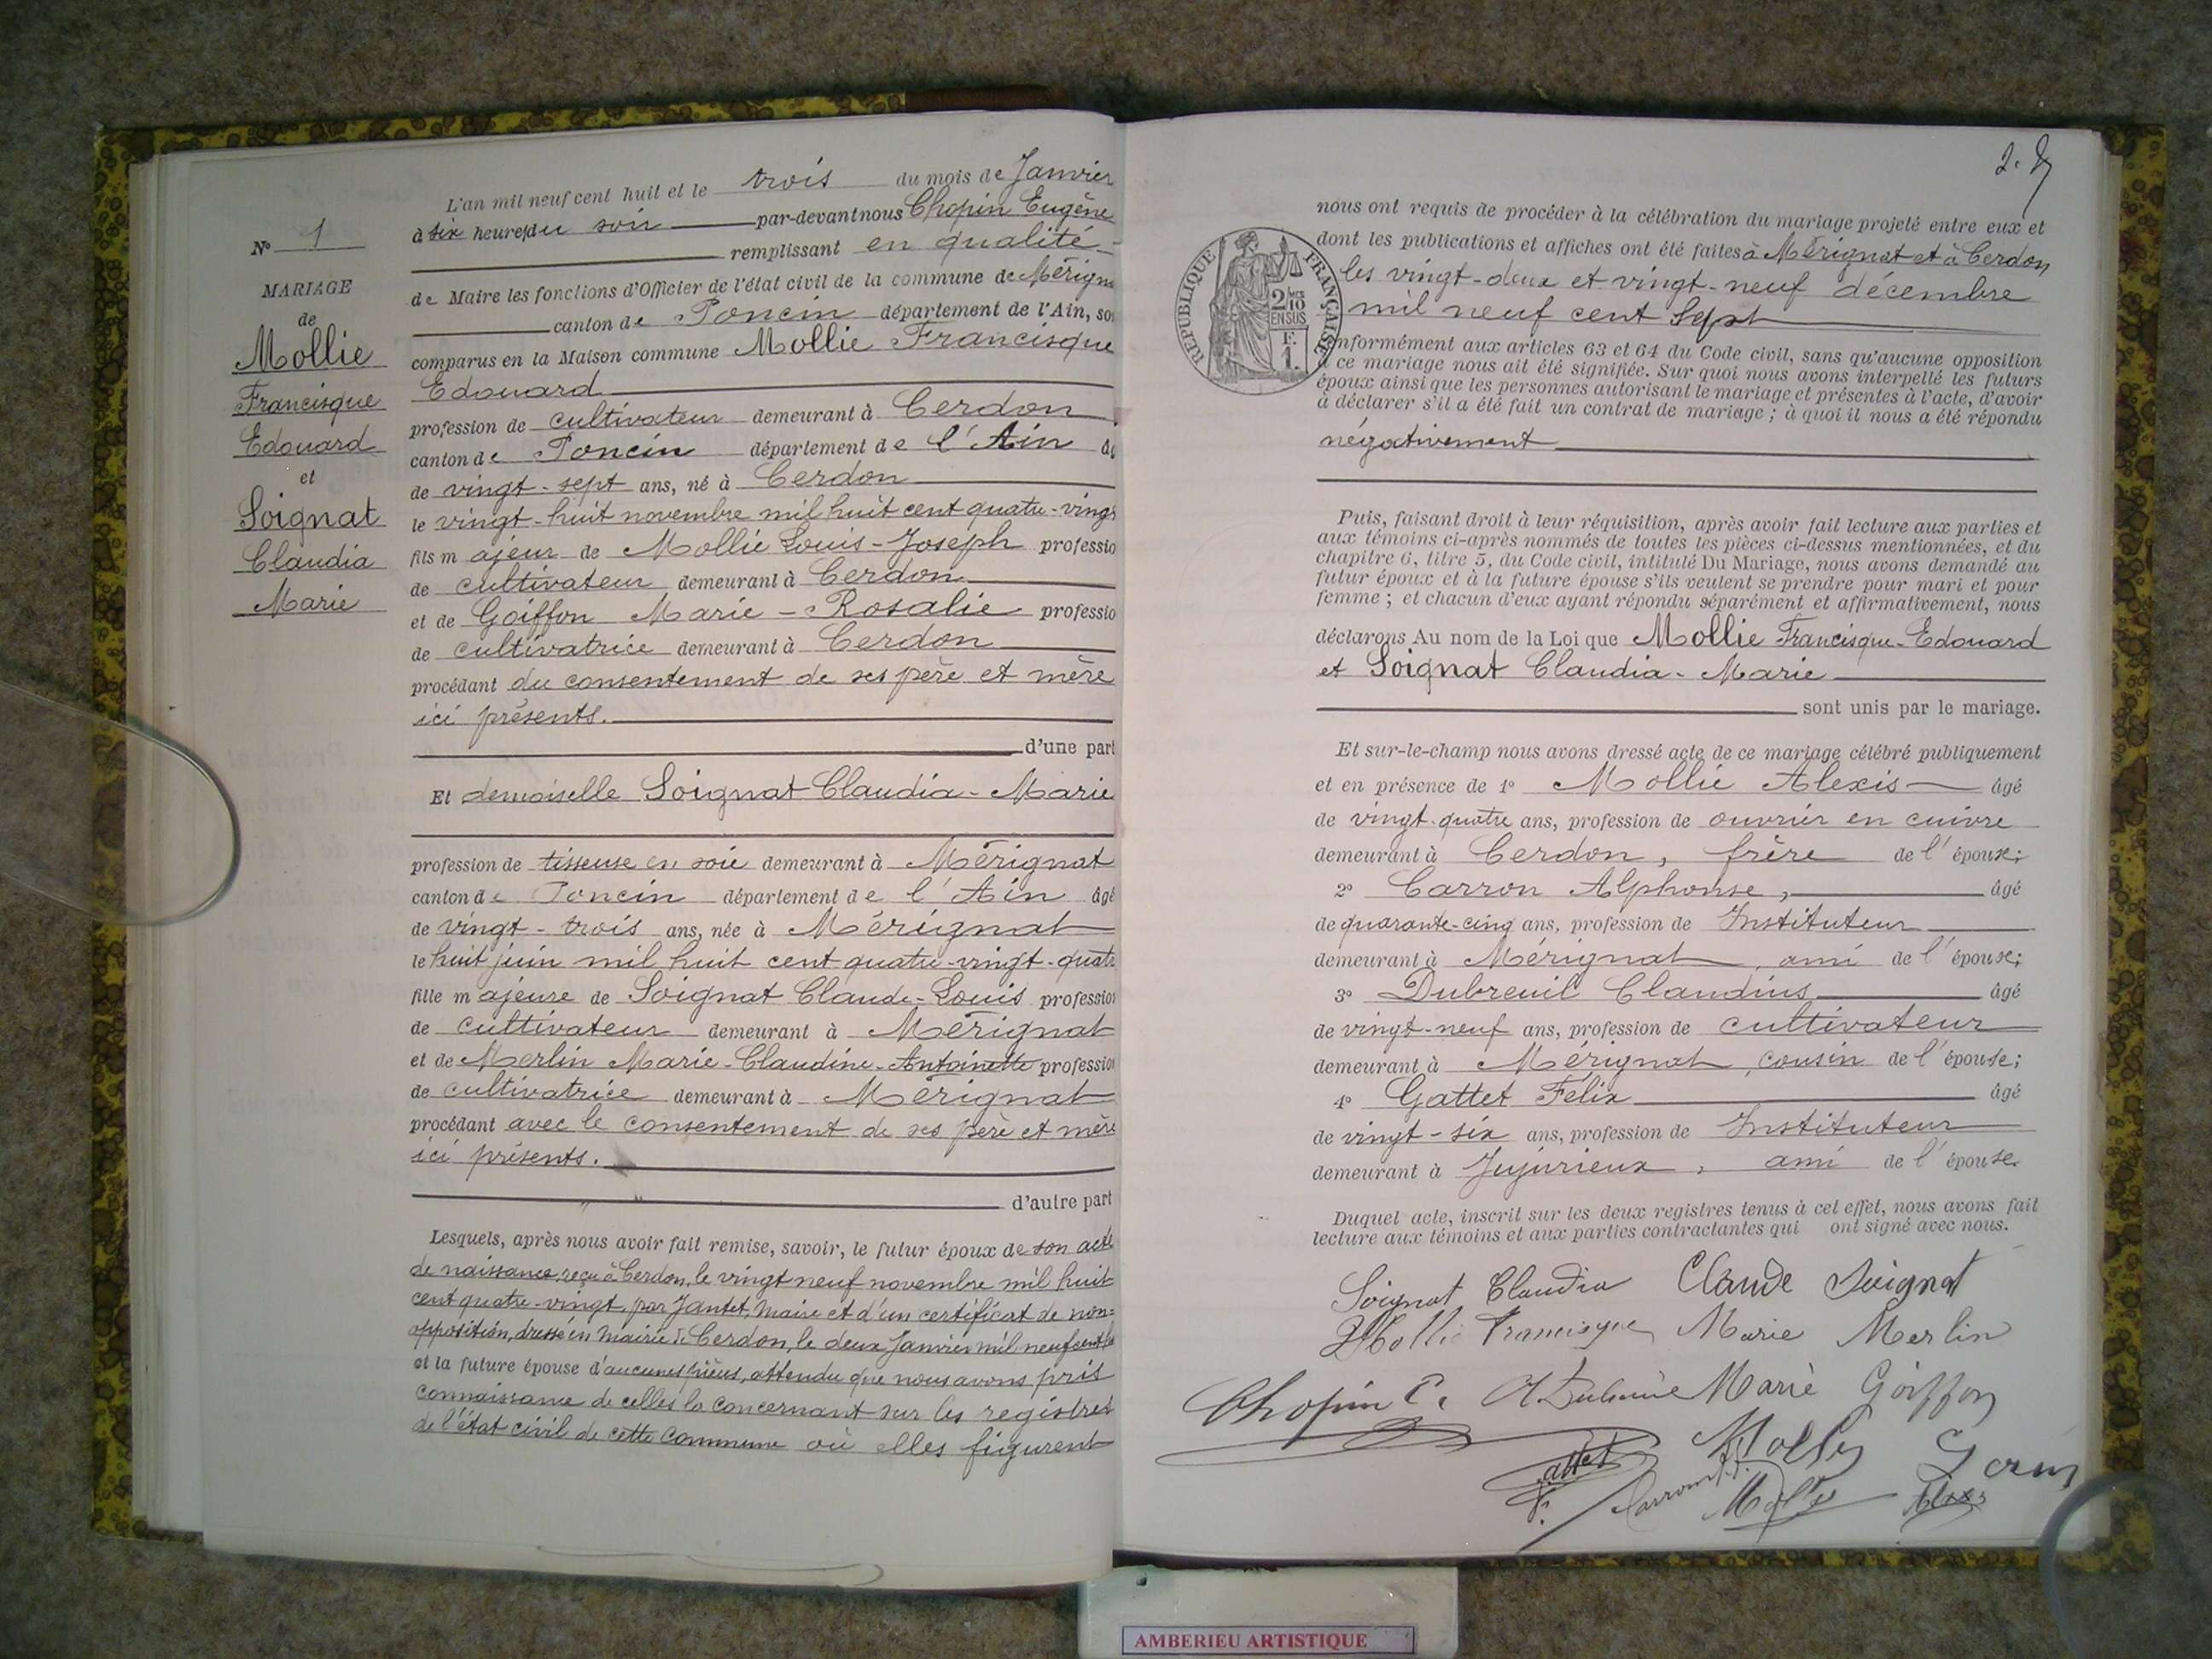 L'an mil neuf cent huit et le trois du mois de Janvier
à six heures du soir par-devant nous Chopin Eugène
remplissant en qualité
de Maire les fonctions d'Officier de l'état civil de la commune de Mérign
canton de Poncin département de l'Ain, so
comparus en la Maison commune Mollie Francisque
Edouard
profession de cultivateur demeurant à Cerdon
canton de Poncin département de l'Ain âg
de vingt-sept ans, né à Cerdon
le vingt-huit novembre mil huit cent quatre-vingt
fils majeur de Mollie Louis-Joseph professio
de cultivateur demeurant à Cerdon
et de Goiffon Marie-Rosalie professio
de cultivatrice demeurant à Cerdon
procédant du consentement de ses père et mère
ici présents.
d'une part
Et demoiselle Soignat Claudia-Marie
profession de tisseuse en soie demeurant à Mérignat
canton de Poncin département de l'Ain âgé
de vingt-trois ans, née à Mérignat
le huit juin mil huit cent quatre-vingt-quatr
fille majeure de Soignat Claude-Louis profession
de cultivateur demeurant à Mérignat
et de Merlin Marie-Claudine-Antoinette profession
de cultivatrice demeurant à Mérignat
procédant avec le consentement de ses père et mère
ici présents.
d'autre part
Lesquels, après nous avoir fait remise, savoir, le futur époux de son acte
de naissance, reçu à Cerdon, le vingt neuf novembre mil huit
cent quatre-vingt, par Jantet, Maire et d'un certificat de non=
opposition, dressé en Mairie de Cerdon, le deux Janvier mil neuf cent
et la future épouse d'aucunes pièces, attendu que nous avons pris
connaissance de celles la concernant sur les registres
de l'état civil de cette commune où elles figurent
N° 1
MARIAGE
de
Mollie
Francisque
Edouard
et
Soignat
Claudia
Marie
2.
nous ont requis de procéder à la célébration du mariage projeté entre eux et
dont les publications et affiches ont été faites à Mérignat et à Cerdon
les vingt-deux et vingt-neuf décembre
mil neuf cent sept
nformément aux articles 63 et 64 du Code civil, sans qu'aucune opposition
à ce mariage nous ait été signifiée. Sur quoi nous avons interpellé les futurs
époux ainsi que les personnes autorisant le mariage et présentes à l'acte, d'avoir
à déclarer s'il a été fait un contrat de mariage ; à quoi il nous a été répondu
négativement
RÉPUBLIQUE FRANÇAISE
2/10
EN SUS
F.
1.
Puis, faisant droit à leur réquisition, après avoir fait lecture aux parties et
aux témoins ci-après nommés de toutes les pièces ci-dessus mentionnées, et du
chapitre 6, titre 5, du Code civil, intitulé Du Mariage, nous avons demandé au
futur époux et à la future épouse s'ils veulent se prendre pour mari et pour
femme ; et chacun d'eux ayant répondu séparément et affirmativement, nous
déclarons Au nom de la Loi que Mollie Francisque-Edouard
et Soignat Claudia-Marie
sont unis par le mariage.
Et sur-le-champ nous avons dressé acte de ce mariage célébré publiquement
et en présence de 1° Mollie Alexis âgé
de vingt-quatre ans, profession de ouvrier en cuivre
demeurant à Cerdon, frère de l'époux;
2° Carron Alphonse, âgé
de quarante-cinq ans, profession de Instituteur
demeurant à Mérignat, ami de l'épouse;
3° Dubreuil Claudius âgé
de vingt-neuf ans, profession de cultivateur
demeurant à Mérignat, cousin de l'épouse;
4° Gattet Félix âgé
de vingt-six ans, profession de Instituteur
demeurant à Jujurieux, ami de l'épouse.
Duquel acte, inscrit sur les deux registres tenus à cet effet, nous avons fait
lecture aux témoins et aux parties contractantes qui ont signé avec nous.
Soignat Claudia Claude Soignat
Mollie Francisque Marie Merlin
Chopin E. Marie Goiffon
Gattet F. Carron
AMBERIEU ARTISTIQUE